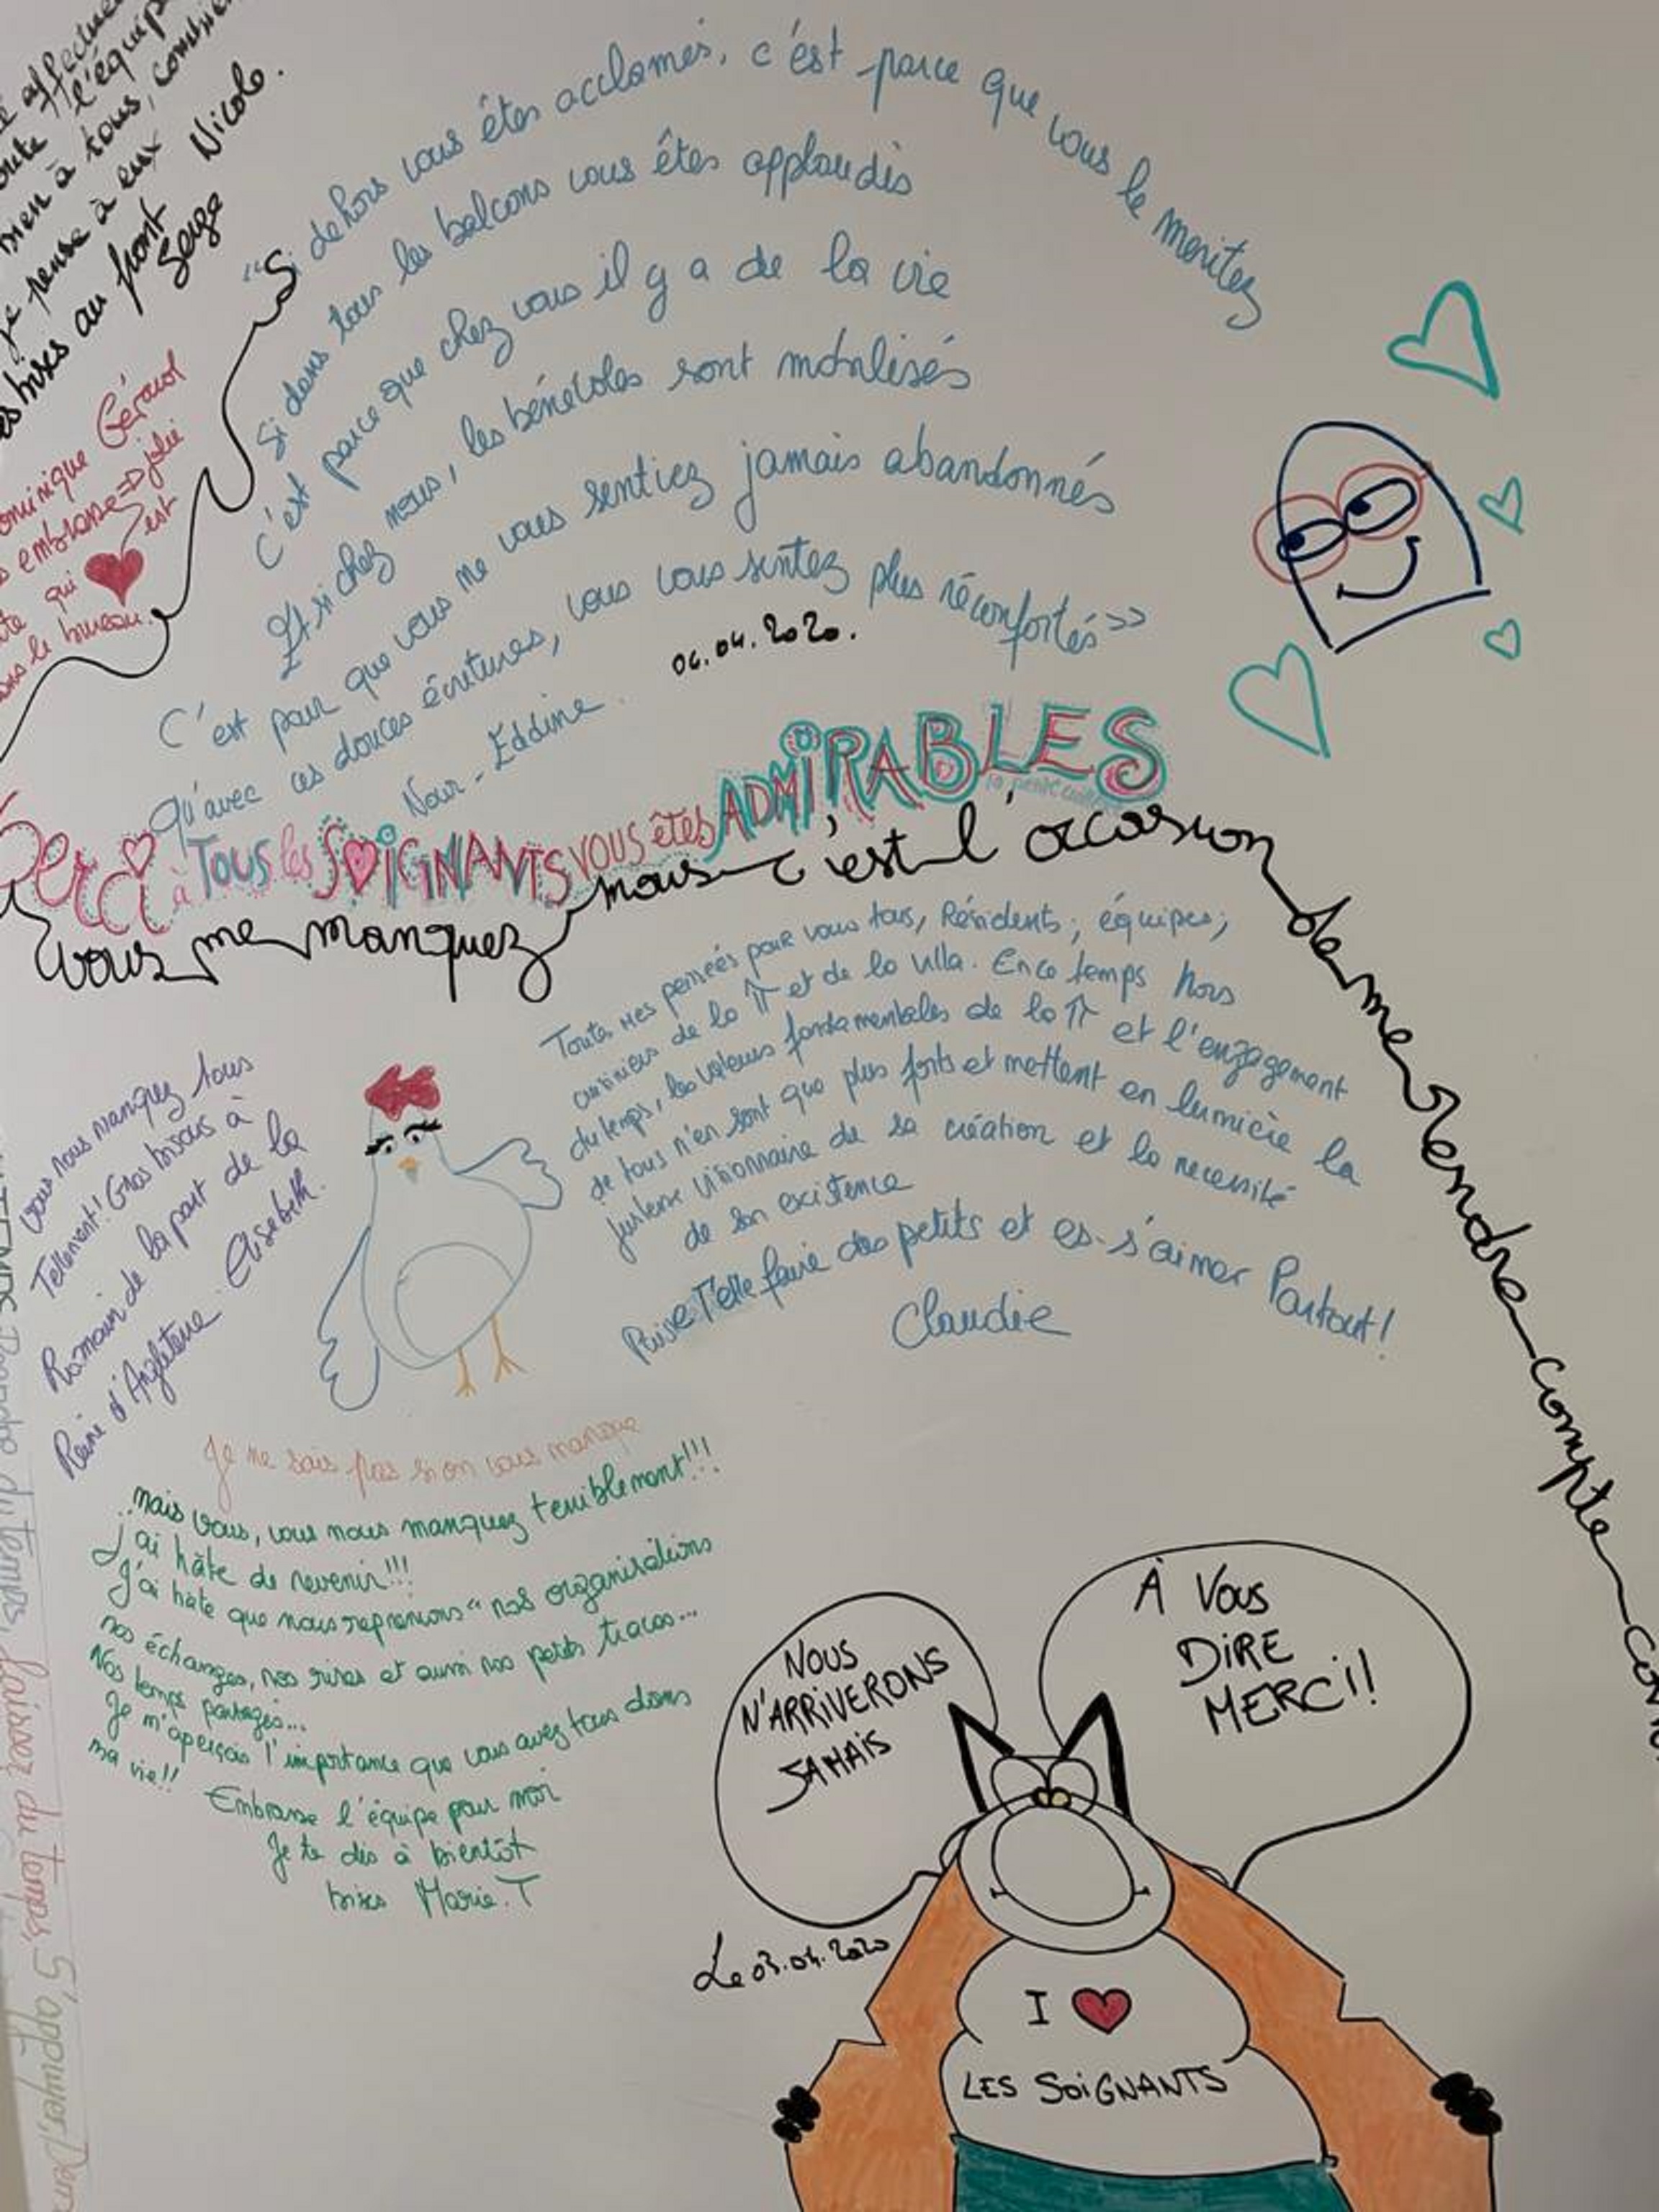 affectueu
toute l'équipe
bien à tous, combien
je pense à eux
bises au front Nicole.
Serge
ominique Géraud
embrasse => jolie
qui est
dans le bureau.
"Si dehors vous êtes acclamés, c'est parce que vous le meritez
Si dans tous les balcons vous êtes applaudis
C'est parce que chez vous il y a de la vie
Et si chez nous, les bénévoles sont mobilisés
C'est pour que vous ne vous sentiez jamais abandonnés
Qu'avec ces douces écritures, vous vous sentez plus réconfortés >>
Nour-Eddine. 06.04.2020.
Merci à TOUS les SOiGNANTS VOUS êtes ADMiRABLES
vous me manquez nous c'est l'occasion de me rendre compte com
Toutes mes pensées pour vous tous, Résidents, équipes,
de la π et de la villa. En ce temps hors
du temps, les valeurs fondamentales de la π et l'engagement
de tous n'en sont que plus forts et mettent en lumière la
justesse visionnaire de sa création et la necessité
de son existence
Puisse T'elle faire des petits et es-s'aimer Partout!
Claudie
Vous nous manquez tous
Tellement! Gros bisous à
Romain de la part de la
Reine d'Angleterre. Elisabeth.
Je ne sais pas si on vous manque
mais vous, vous nous manquez terriblement!!!
J'ai hâte de revenir!!!
J'ai hâte que nous reprenions "nos organisations
nos échanges, nos rires et aussi nos petits tracas...
Nos temps partagés...
Je m'aperçois l'importance que vous avez tous dans
ma vie!!
Embrasse l'équipe pour moi
Je te dis à bientôt
bises Marie.T
NOUS
N'ARRiVERONS
JAMAiS
À Vous
DiRE
MERCi!
Le 03.04.2020
I ♥
LES SOiGNANTS
Prendre du temps, Laisser du temps, S'appuyer,